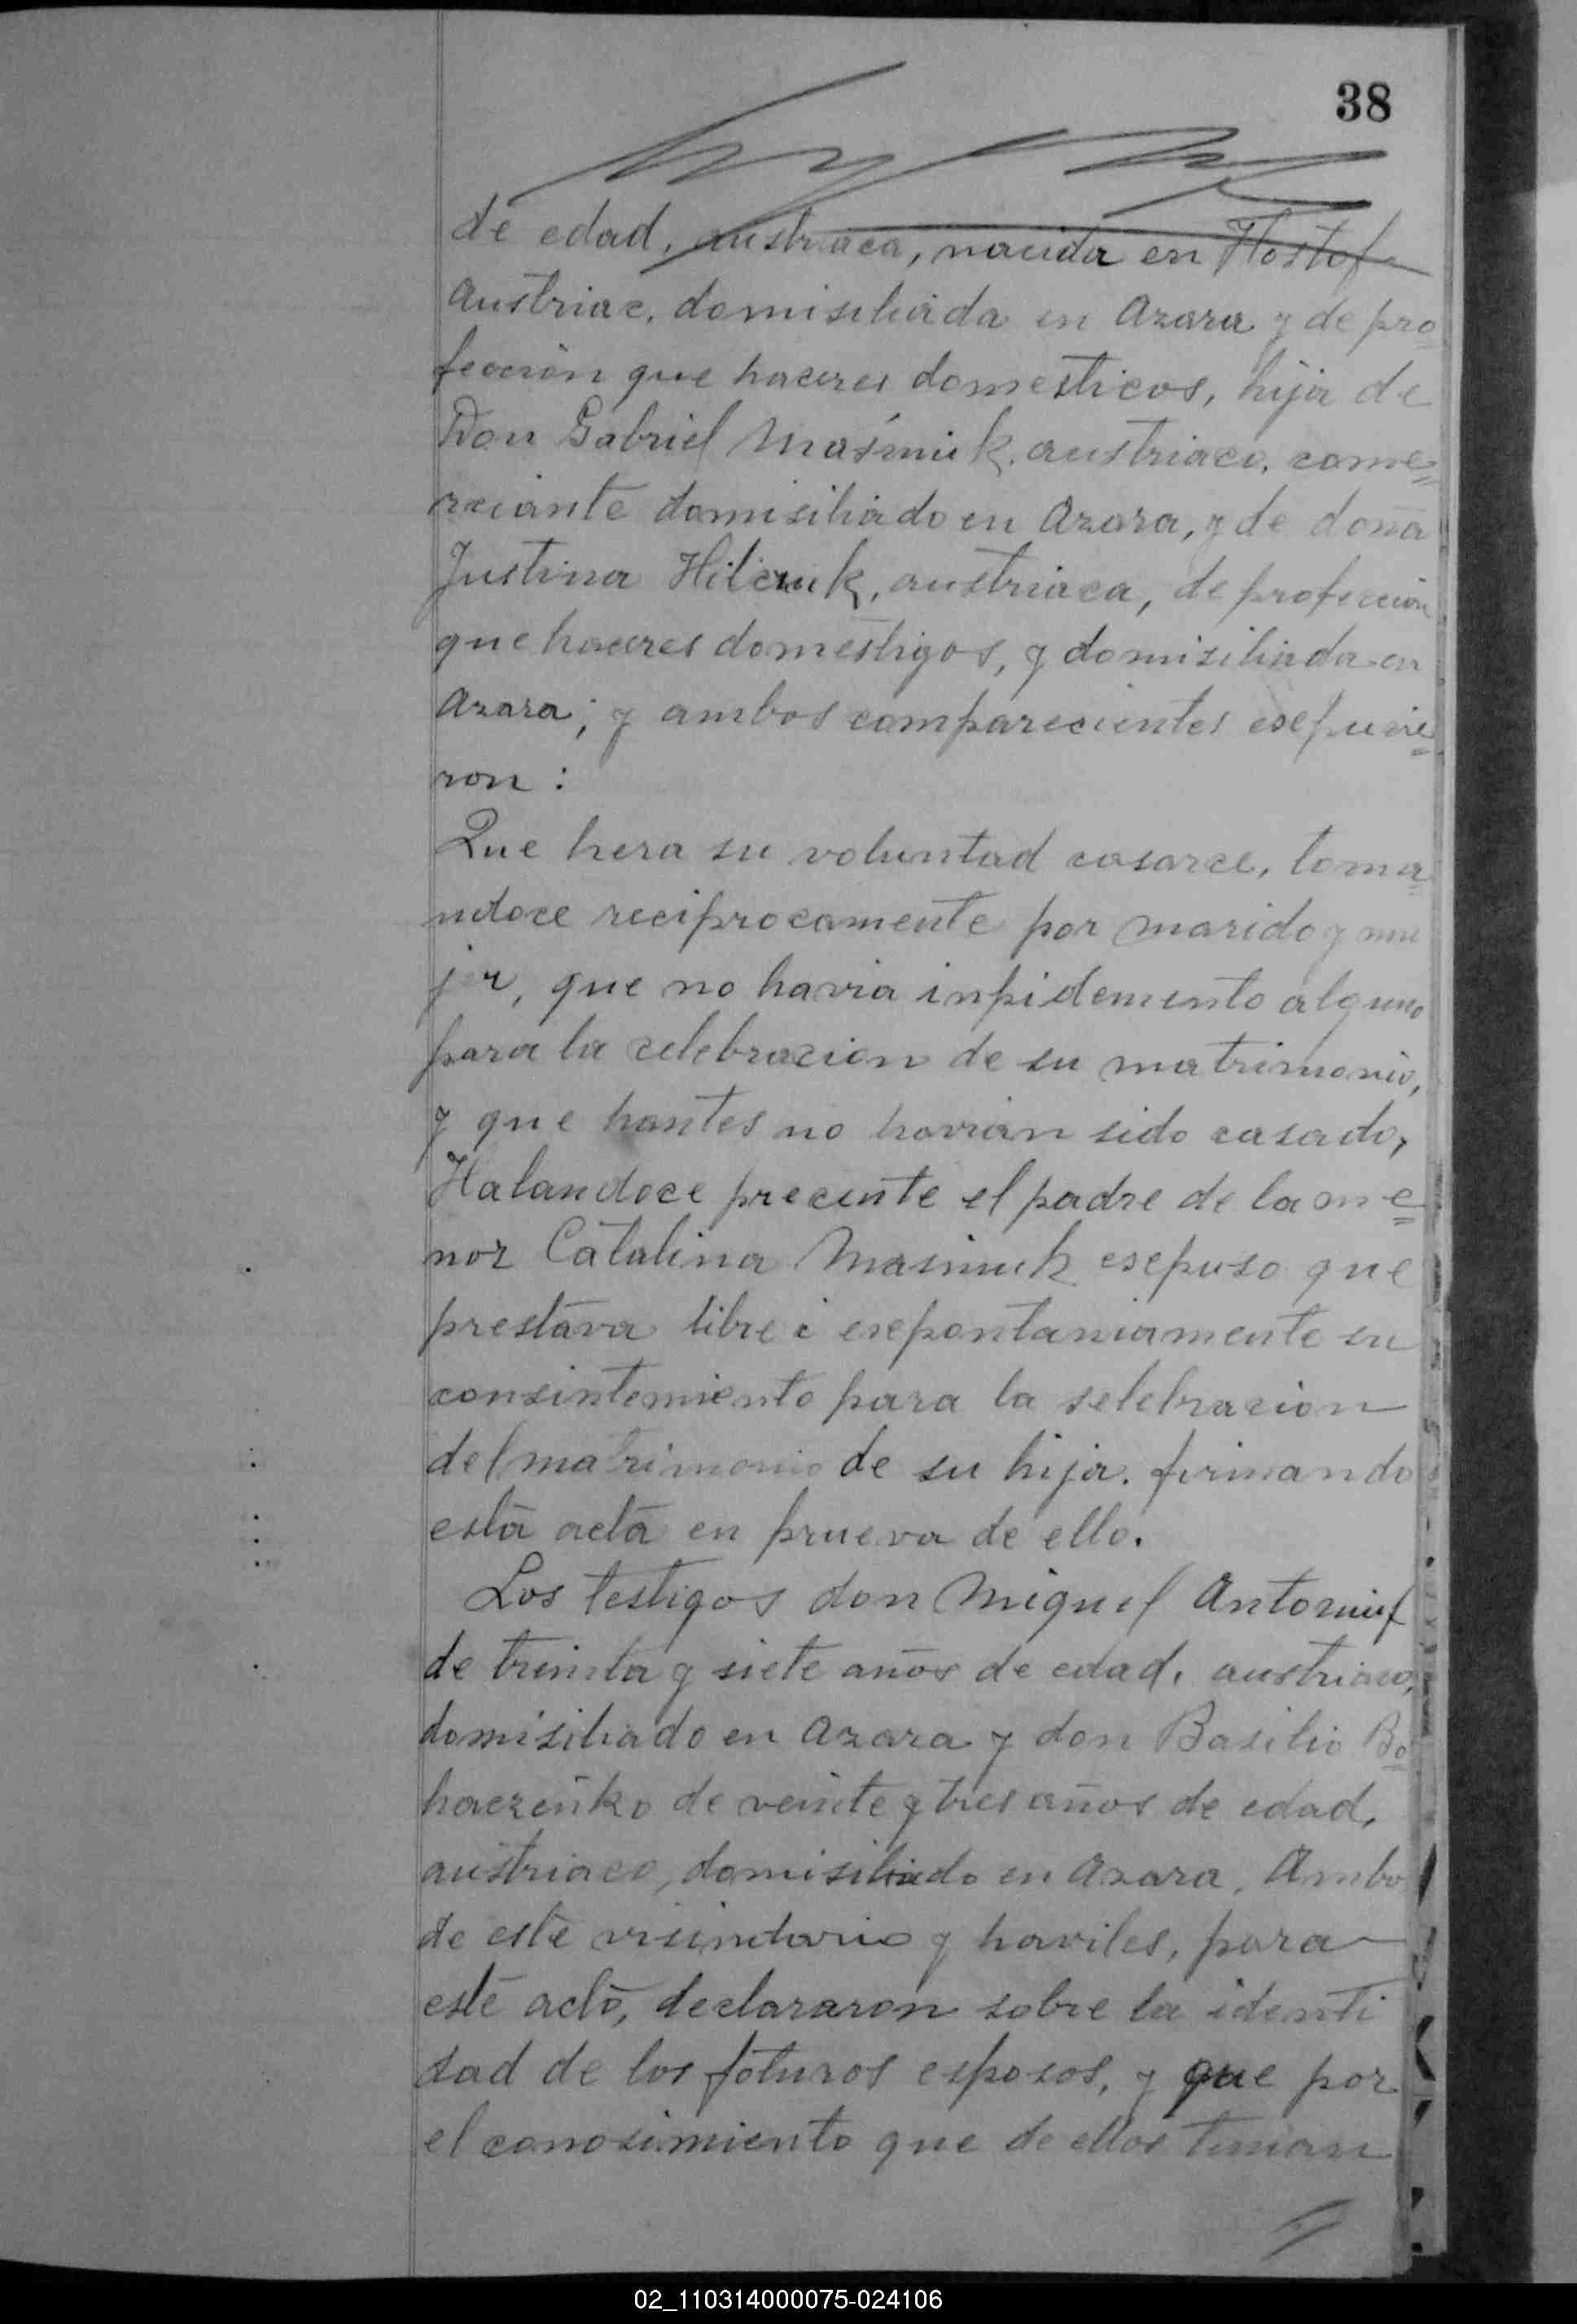 38
de edad, austriaca, nacida en Hostof
Austriac. domisiliada en Azara y de pro
feccion que haceres domesticos, hija de
Don Gabriel Masiniuk, austriaco, come=
rciante domisiliado en Azara, y de dona
Justina Hilczuk, austriaca, de profeccion
que haceres domestigos, y domisiliada en
Azara; y ambos comparecientes esepucie=
ron:
Que hera su voluntad casarce, toma
ndoce reciprocamente por marido y mu
jer, que no havia inpidemento alguno
para la celebracion de su matrimonio,
y que hantes no havian sido casado,
Halandoce precente el padre de la me=
nor Catalina Masiniuk esepuso que
prestava libre i esepontaniamente su
consintemiento para la selebracion
del matrimonio de su hija. firmando
esta acta en prueva de ello.
Los testigos don Miguel Antoniuf
de treinta y siete años de edad, austriaco,
domisiliado en Azara y don Basilio Bo
haczenko de veinte y tres años de edad,
austriaco, domisiliado en Azara, Ambo
de este visindario y haviles, para
este acto, declararon sobre la identi
dad de los foturos esposos, y que por
el conosimiento que de ellos tenian
02_110314000075-024106